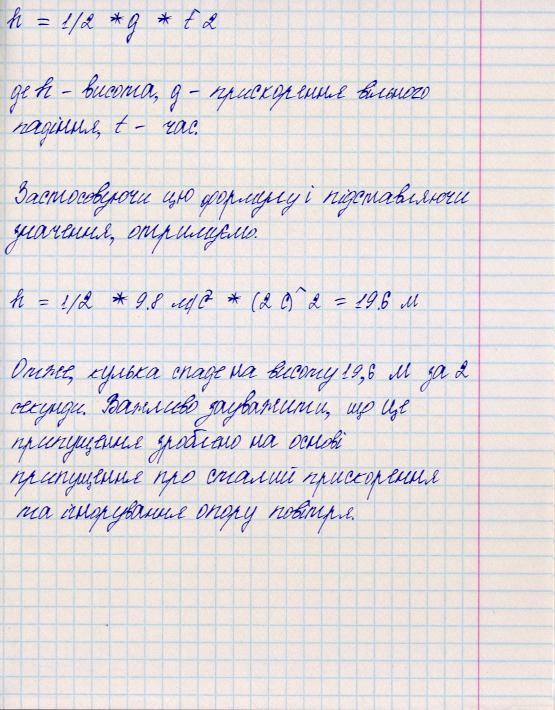 h = 1/2 * g * t^2
де h - висота, g - прискорення вільного
падіння, t - час.
Застосовуючи цю формулу і підставляючи
значення, отримуємо:
h = 1/2 * 9.8 м/с² * (2 с)^2 = 19.6 м
Отже, кулька спаде на висоту 19,6 м за 2
секунди. Важливо зауважити, що це
припущення зроблено на основі
припущення про сталий прискорення
та ігнорування опору повітря.